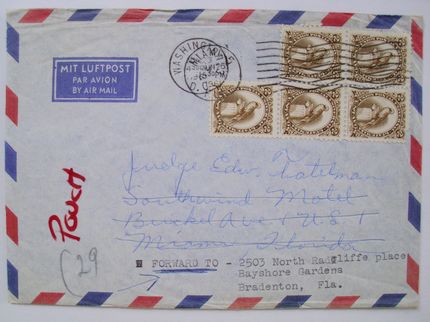 MIT LUFTPOST
PAR AVION
BY AIR MAIL
WASHINGTON
D.C.
Judge Edw. Tatelman
Southwind Motel
Brickel Ave & U.S. 1
Miami Florida
FORWARD TO - 2503 North Radcliffe place
Bayshore Gardens
Bradenton, Fla.
Pouch
29